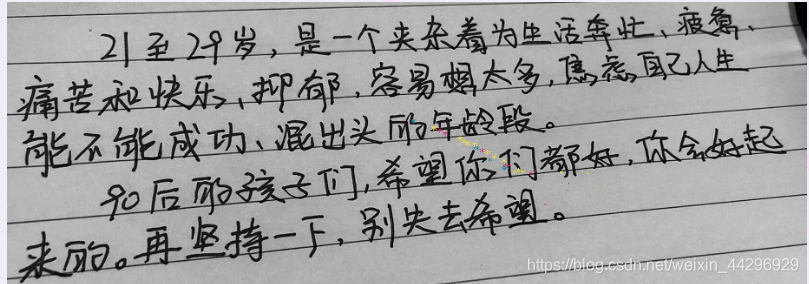 21至29岁，是一个夹杂着为生活奔忙、疲惫、
痛苦和快乐、抑郁，容易想太多，焦虑自己人生
能不能成功、混出头的年龄段。
90后的孩子们，希望你们都好，你会好起
来的。再坚持一下，别失去希望。
https://blog.csdn.net/weixin_44296929